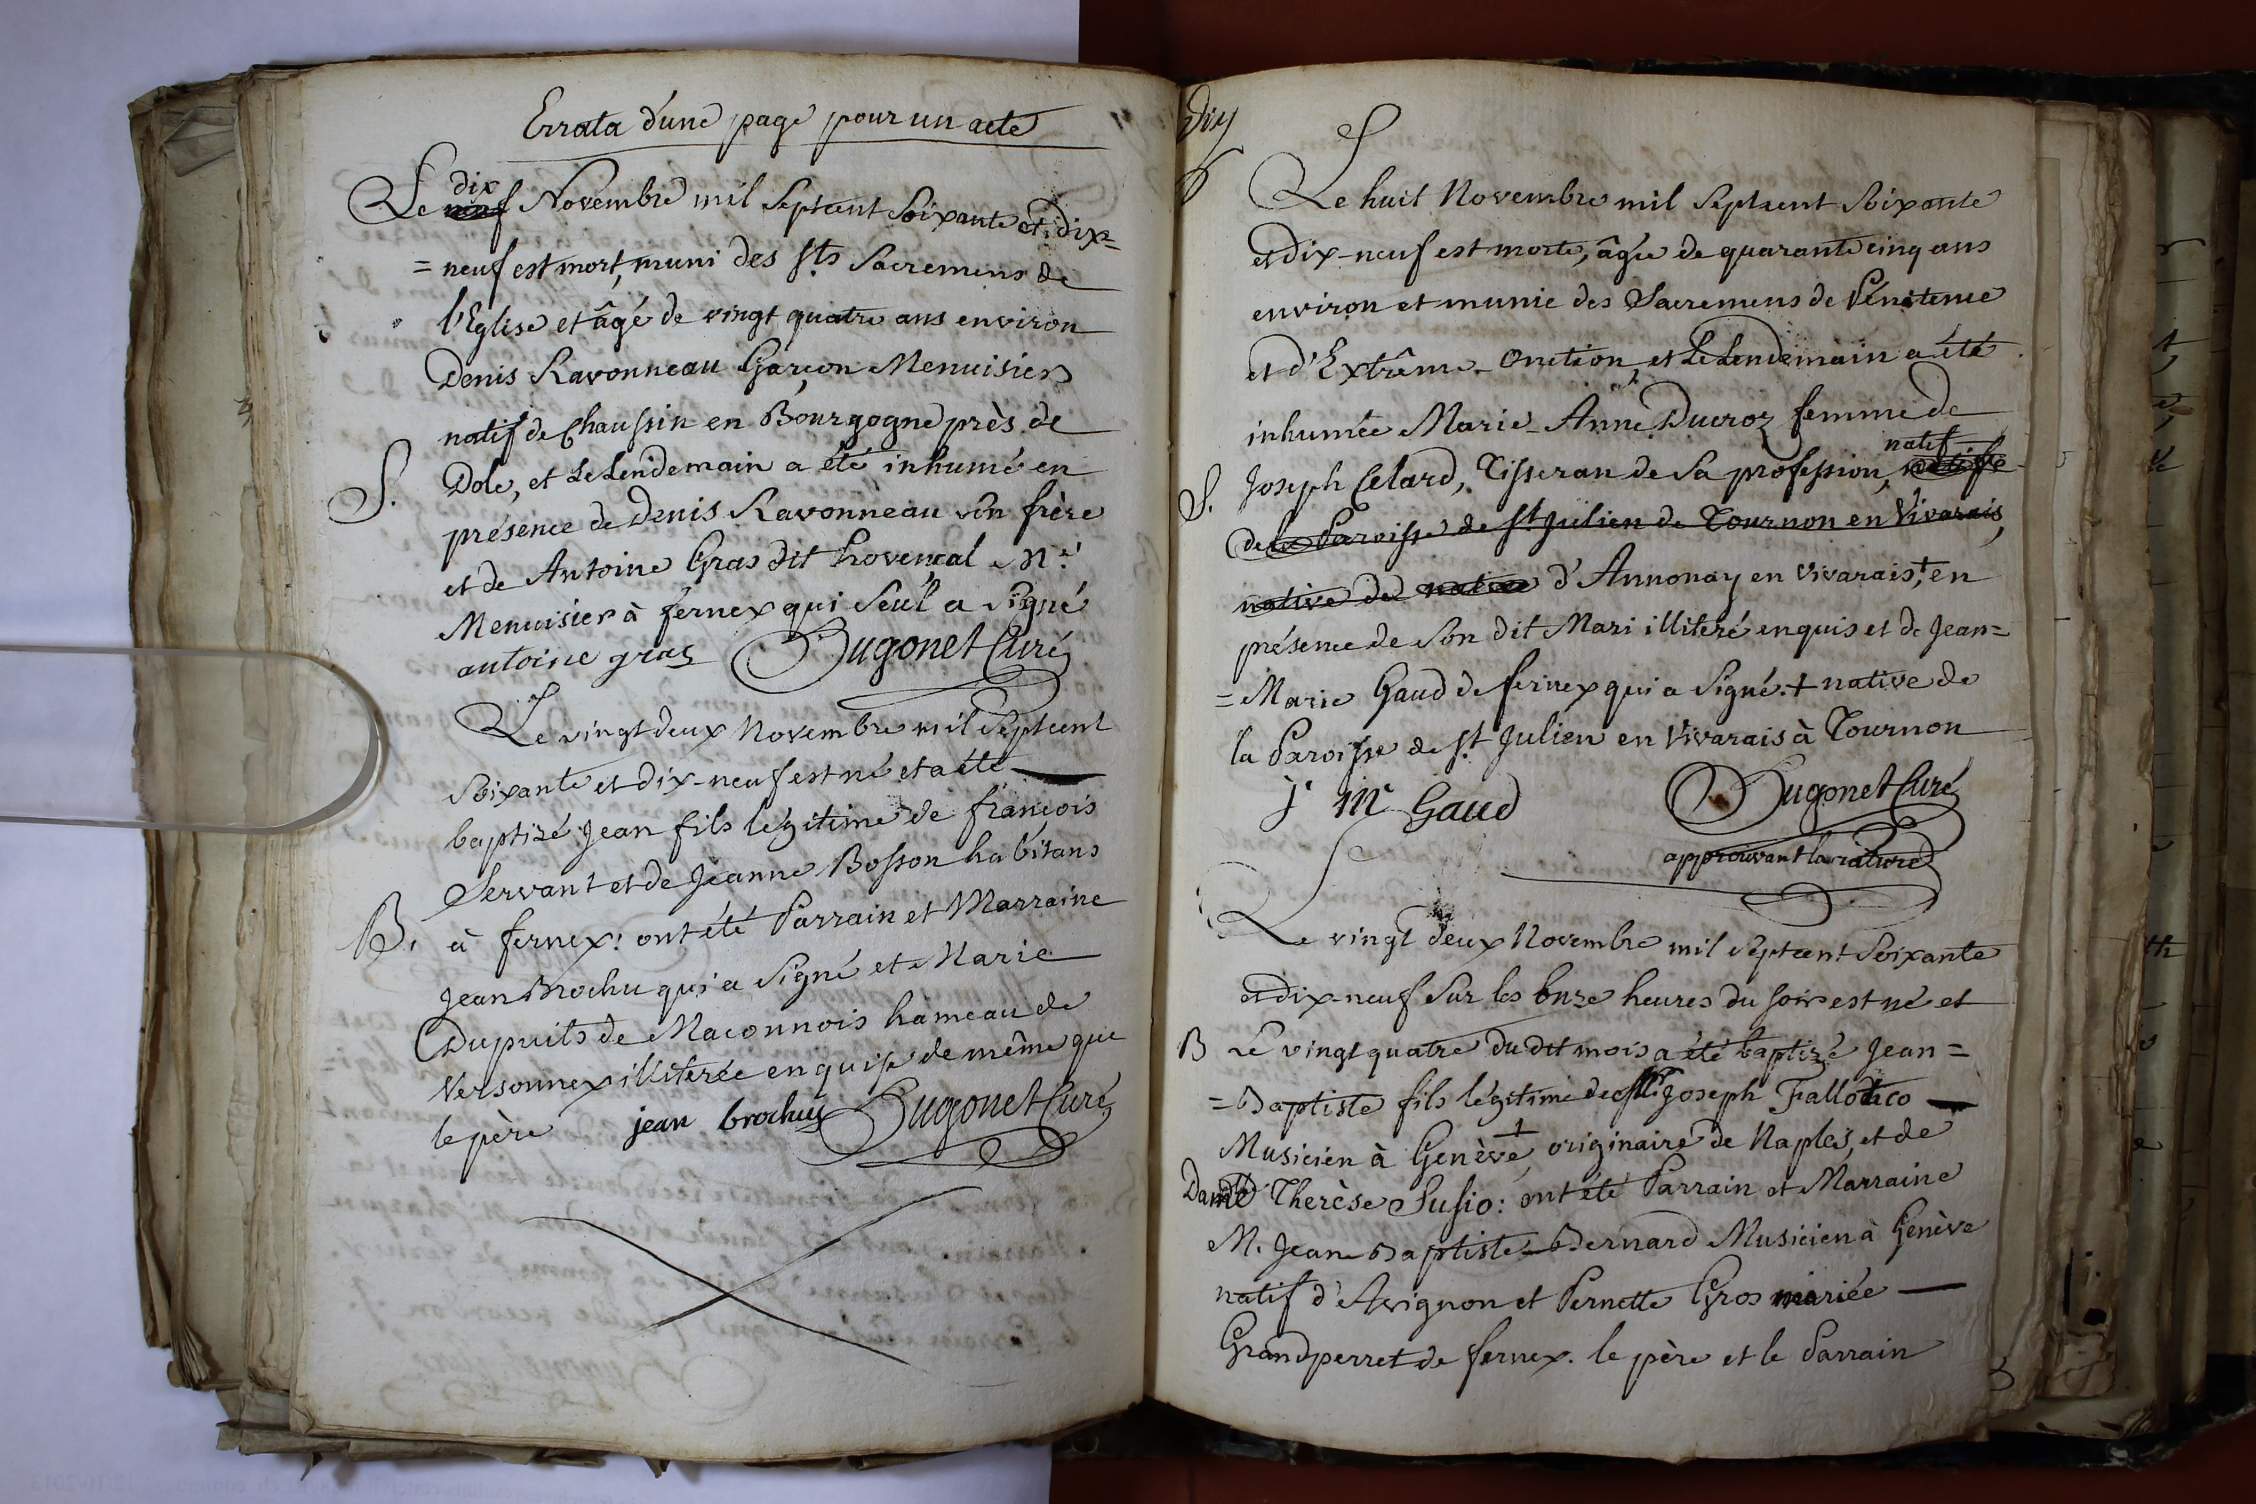 Errata d'une page pour un acte
dix
Le neuf Novembre mil Septcent Soixante et dix=
=neuf est mort, muni des Sts Sacremens de
l'Eglise et âgé de vingt quatre ans environ
Denis Ravonneau Garçon Menuisier
natif de Chaussin en Bourgogne près de
S. Dole, et Le Lendemain a été inhumé en
présence de Denis Ravonneau son frère
et de Antoine Gras dit Provençal Me
Menuisier à fernex qui Seul a Signé
antoine gras Hugonet Curé
Le vingt deux Novembre mil Septcent
Soixante et dix-neuf est né et a été
baptizé Jean fils légitime de françois
Servant et de Jeanne Bosson habitans
B. à fernex: ont été Parrain et Marraine
Jean Brochu qui a Signé et Marie
Dupuits de Maconnois hameau de
Versonnex illiterée enquise de même que
le père jean brochu Hugonet Curé
Dix
Le huit Novembre mil Septcent Soixante
et dix-neuf est morte, âgée de quarante cinq ans
environ et munie des Sacremens de Pénitence
et d'Extrême-Onction, et Le Lendemain a été
inhumée Marie-Anne Ducroz femme de
natif
S. Joseph Celard, Tisseran de Sa profession, native
de la Paroisse de St Julien de Tournon en Vivarais,
native de native d'Annonay en Vivarais,+ en
présence de Son dit Mari illiteré enquis et de Jean=
=Marie Gaud de fernex qui a Signé. + native de
la Paroisse de St Julien en Vivarais à Tournon
j m Gaud Hugonet Curé
approuvant la rature
Le vingt deux Novembre mil Septcent Soixante
et dix-neuf Sur les onze heures du soir est né et
B Le vingt quatre du dit mois a été baptizé Jean=
=Baptiste fils légitime de Sr Joseph Fallotico
Musicien à Genève, originaire de Naples, et de
Damlle Therèse Susio: ont été Parrain et Marraine
M. Jean Baptiste Bernard Musicien à Genève
natif d'Avignon et Pernette Gros mariée
Grandperret de fernex. le père et le Parrain